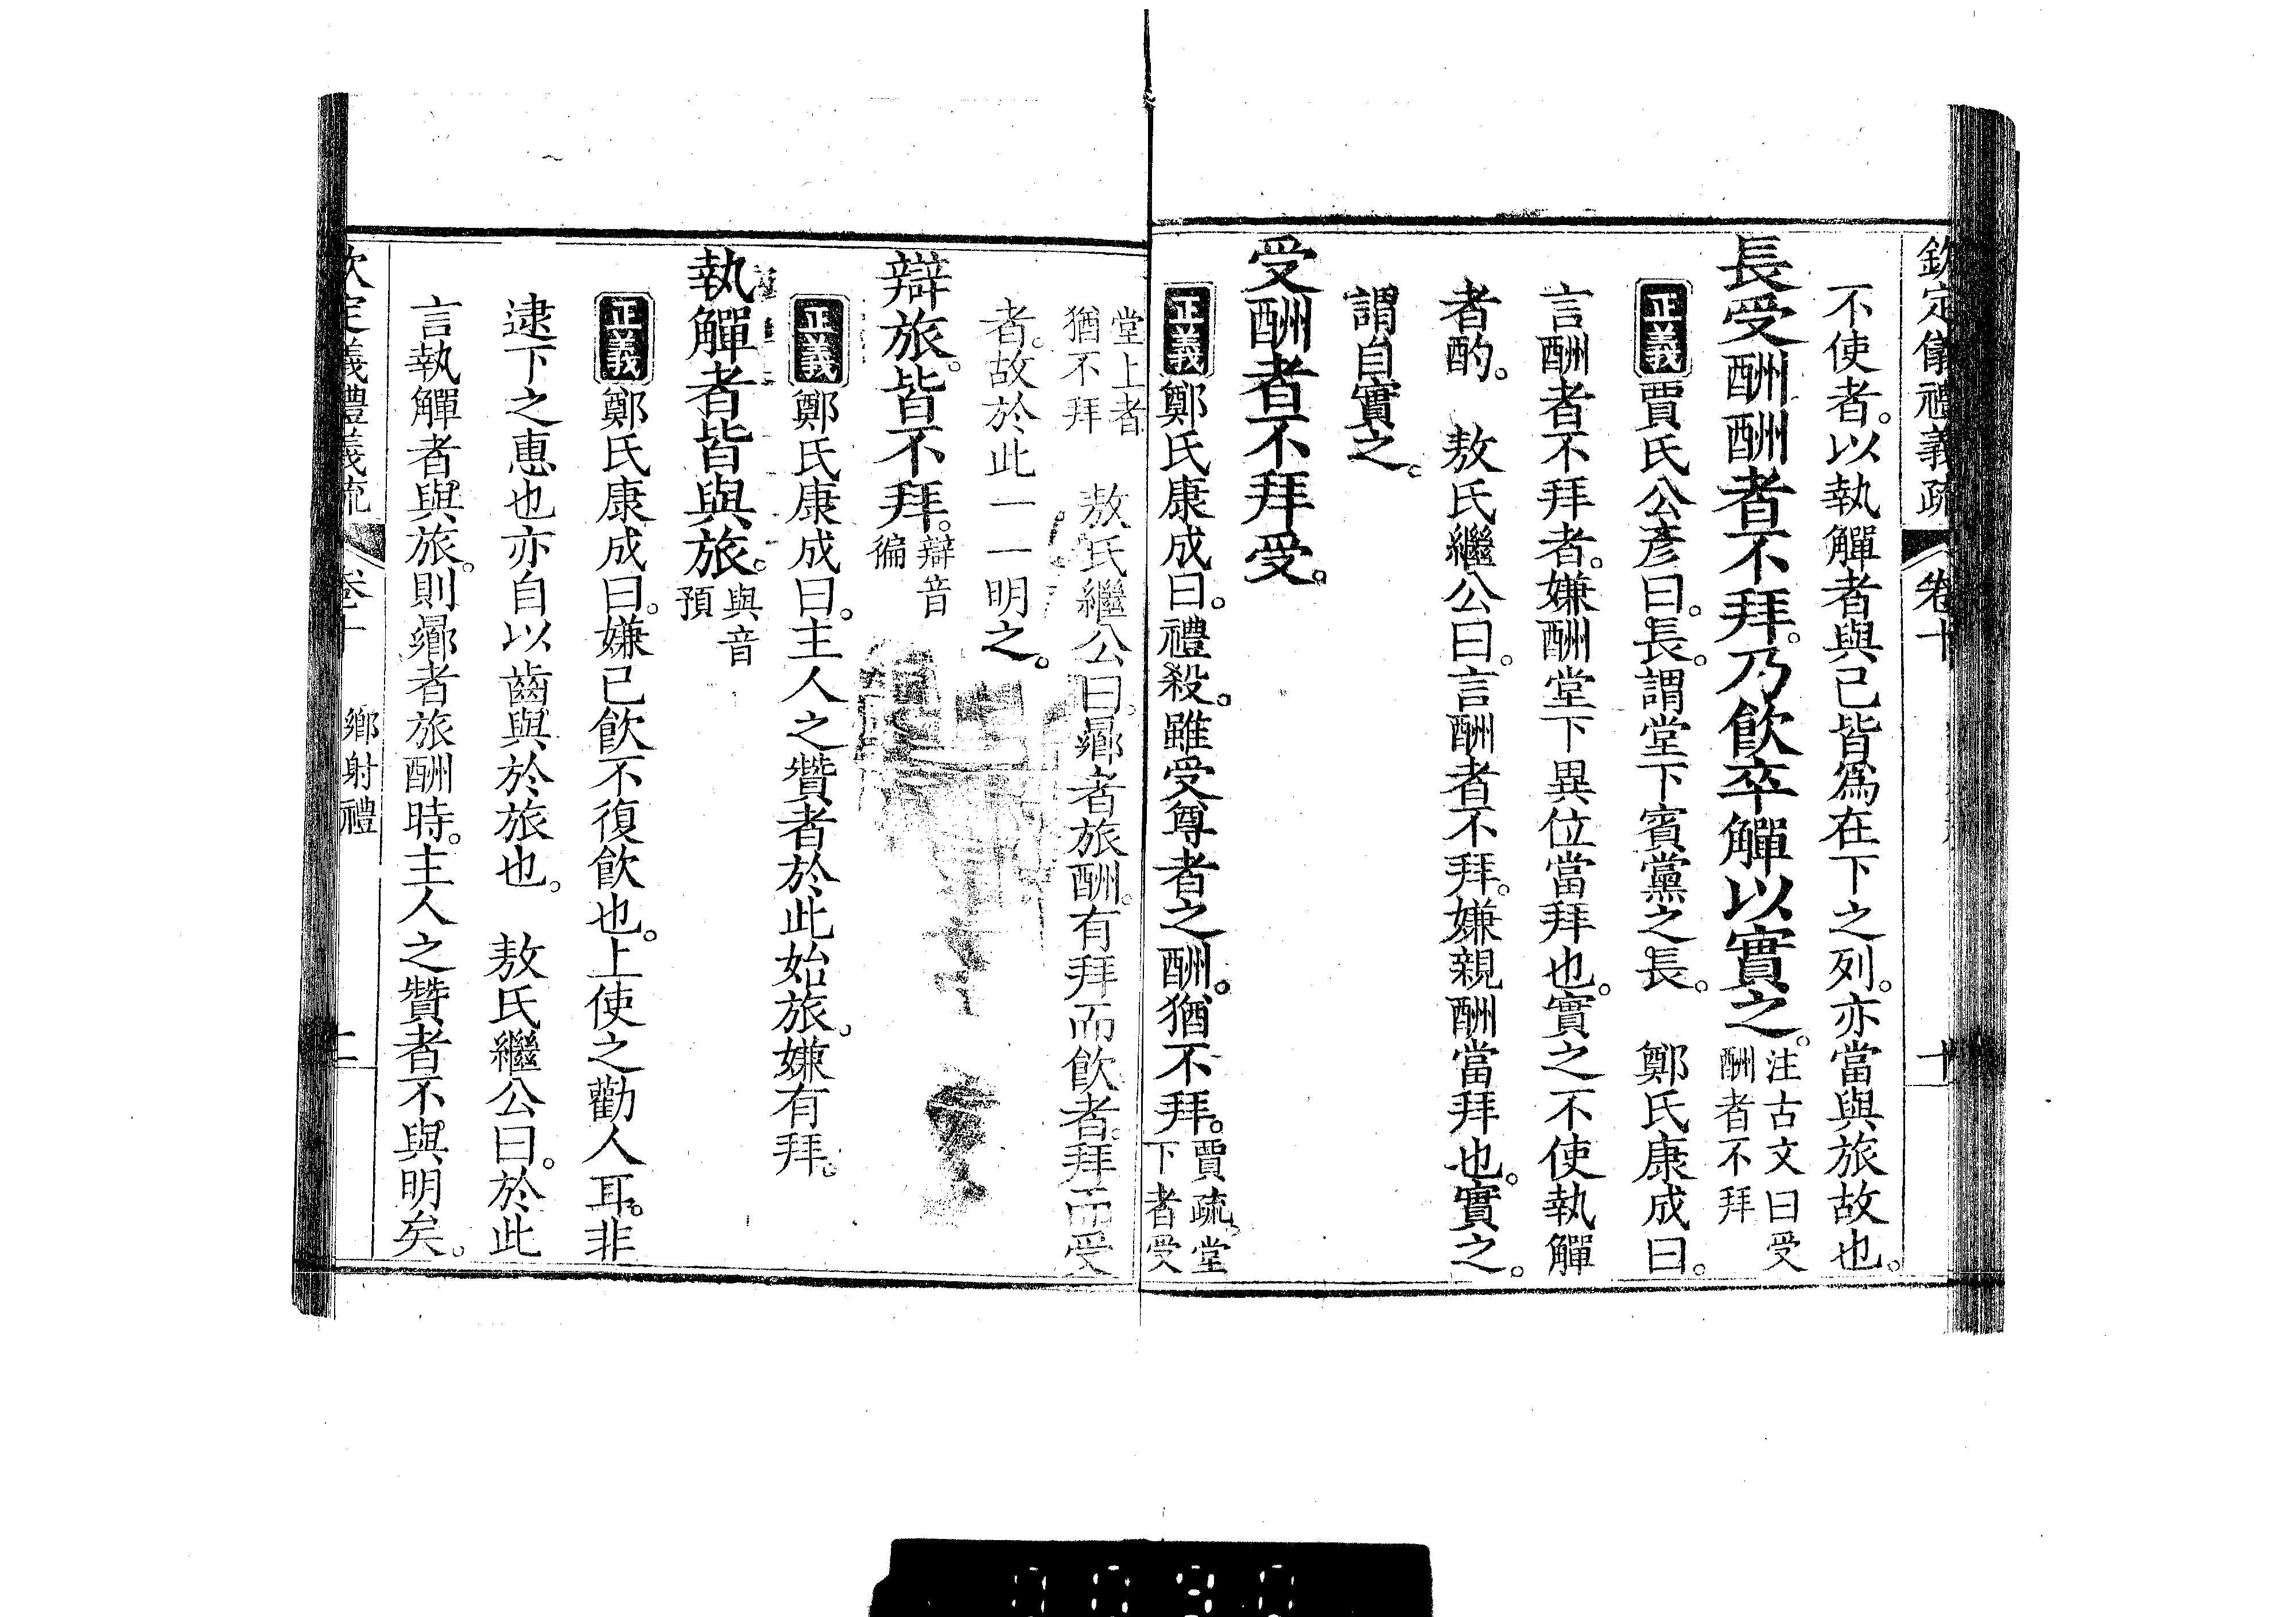 欽定儀禮義疏 卷十
不使者。以執觶者與己皆爲在下之列。亦當與旅故也。
長受酬。酬者不拜。乃飮卒觶。以實之。注古文曰受酬者不拜
正義 賈氏公彥曰。長。謂堂下賓黨之長。 鄭氏康成曰。
言酬者不拜者。嫌酬堂下異位當拜也。實之不使執觶
者酌。 敖氏繼公曰。言酬者不拜。嫌親酬當拜也。實之。
謂自實之。
受酬者不拜受。
正義 鄭氏康成曰。禮殺。雖受尊者之酬。猶不拜。賈疏。堂下者受
堂上者猶不拜 敖氏繼公曰。曏者旅酬。有拜而飮者。拜而受
者。故於此一一明之。
辯旅。皆不拜。辯音徧
正義 鄭氏康成曰。主人之贊者於此始旅。嫌有拜。
執觶者皆與旅。與音預
正義 鄭氏康成曰。嫌已飮不復飮也。上使之勸人耳。非
逮下之惠也。亦自以齒與於旅也。 敖氏繼公曰。於此
言執觶者與旅。則曏者旅酬時。主人之贊者不與明矣。
欽定儀禮義疏 卷十 鄉射禮